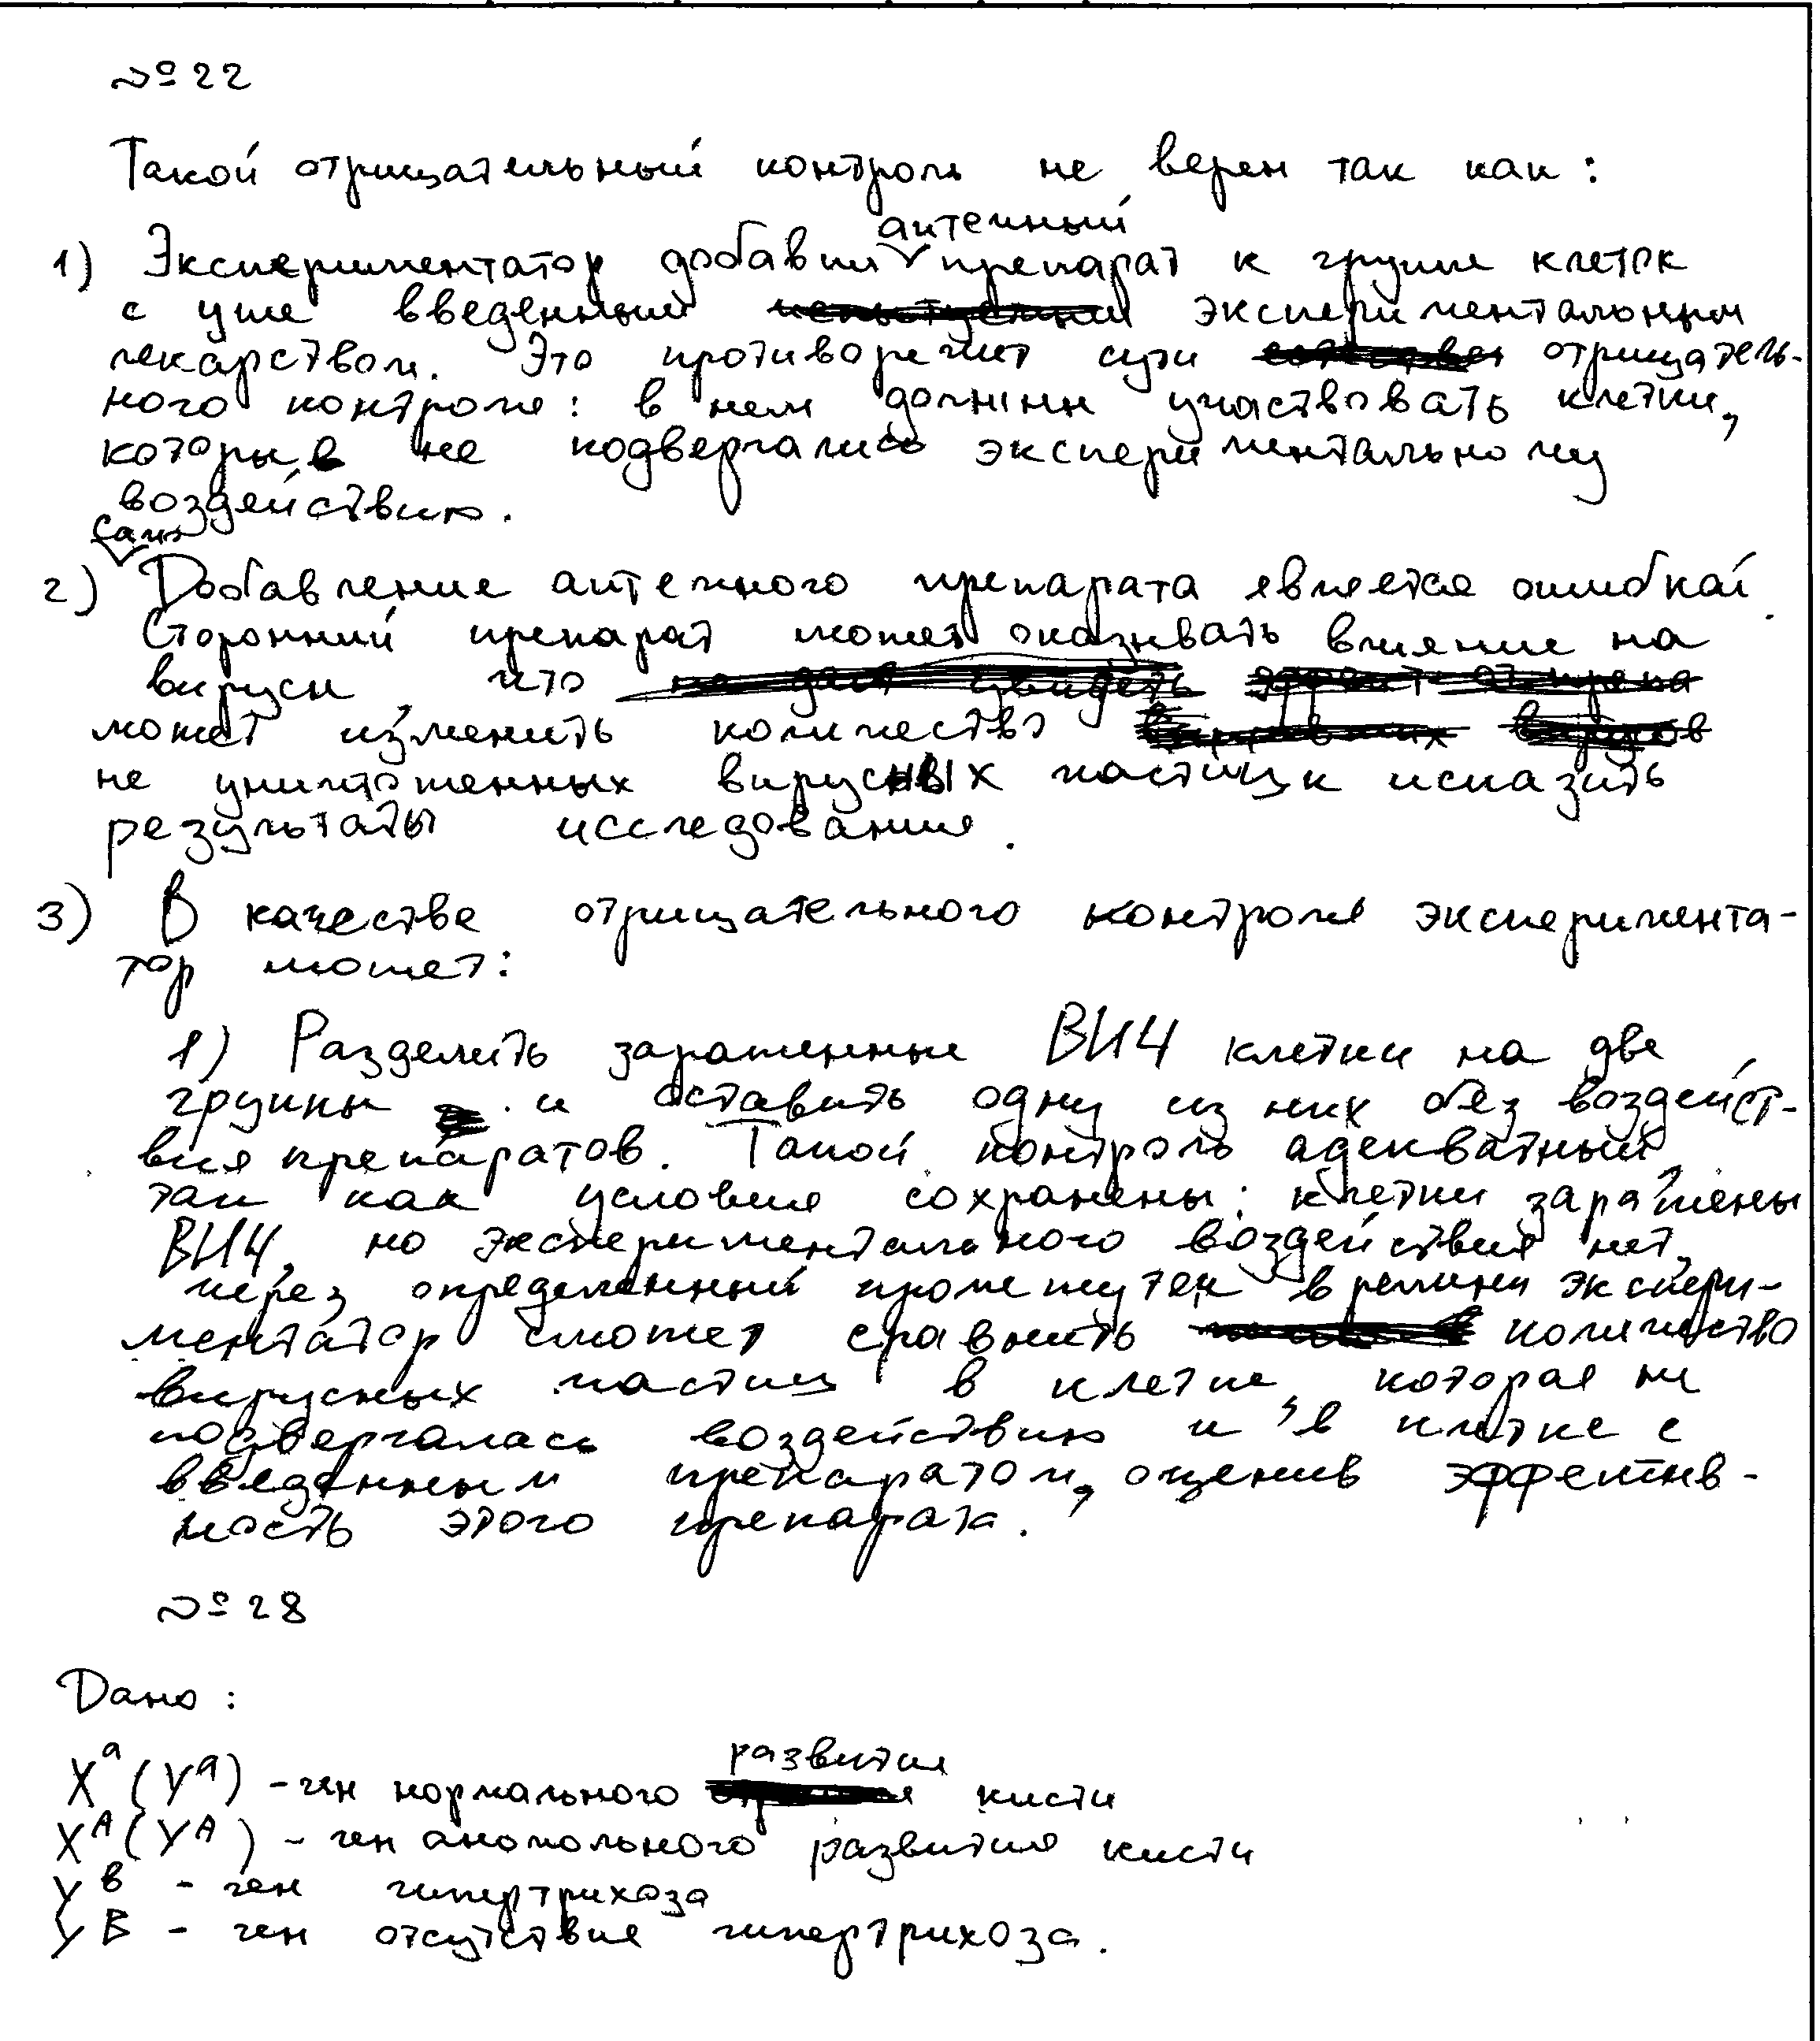 № 22
Такой отрицательный контроль не верен так как:
аптечный
1) Экспериментатор добавил препарат к группе клеток
с уже введенным экспериментальным
лекарством. Это противоречит сути отрицатель-
ного контроля: в нем должны участвовать клетки,
которые не подвергались экспериментальному
воздействию.
Само
2) Добавление аптечного препарата является ошибкой.
Сторонний препарат может оказывать влияние на
вирусы что
может изменить количество
не уничтоженных вирусных частиц и исказить
результаты исследования.
3) В качестве отрицательного контроля эксперимента-
тор может:
1) Разделить зараженные ВИЧ клетки на две
группы и оставить одну из них без воздейст-
вия препаратов. Такой контроль адекватный,
так как условия сохранены: клетки заражены
ВИЧ, но экспериментального воздействия нет,
через определенный промежуток времени экспери-
ментатор сможет сравнить количество
вирусных частиц в клетке, которая не
подвергалась воздействию и в клетке с
введенным препаратом, оценив эффектив-
ность этого препарата.
№ 28
Дано:
развития
Xᵃ (Yᵃ) - ген нормального кисти
Xᴬ (Yᴬ) - ген аномольного развития кисти
Yᵇ - ген гипертрихоза
Yᴮ - ген отсутствия гипертрихоза.